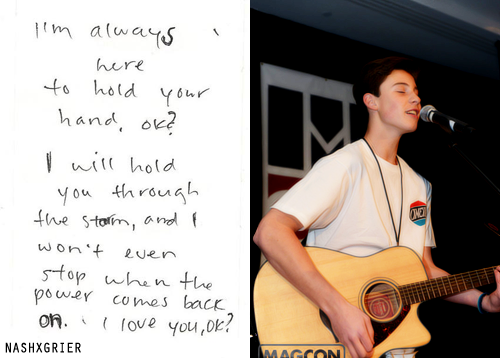 I'm always
here
to hold your
hand, ok?
I will hold
you through
the storm, and I
won't even
stop when the
power comes back
on. I love you, ok?
NASHXGRIER
MAGCON